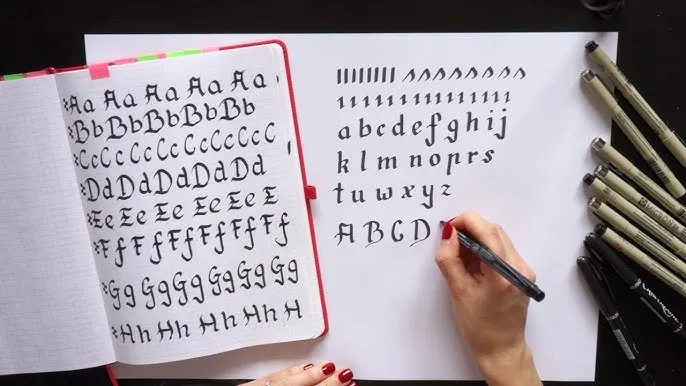 Aa Aa Aa Aa Aa
Bb Bb Bb Bb Bb
Cc Cc Cc Cc Cc C
Dd Dd Dd Dd D
Ee Ee Ee Ee E
Ff Ff Ff Ff Ff
Gg Gg Gg Gg Gg
Hh Hh Hh Hh H
a b c d e f g h i j
k l m n o p r s
t u w x y z
A B C D
MICRON